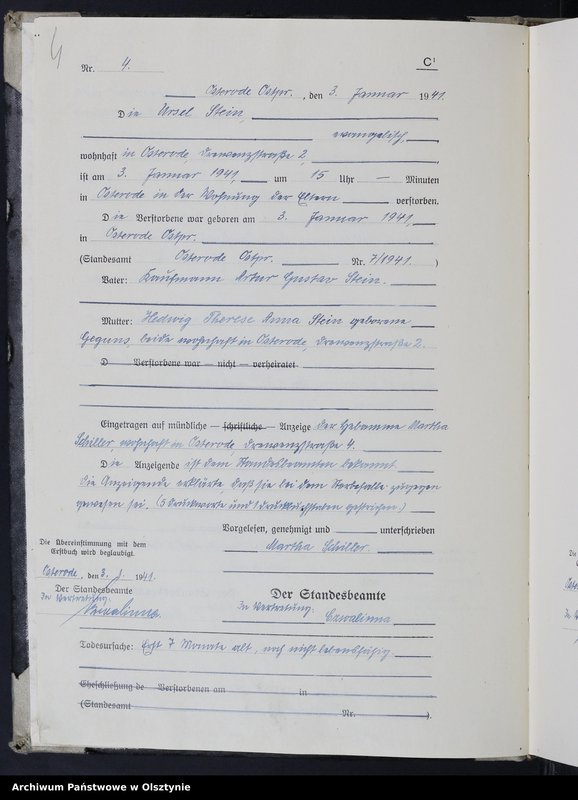 4
Nr. 4.
C¹
Osterode Ostpr., den 3. Januar 1941.
Die Ursel Stein,
evangelisch,
wohnhaft in Osterode, Drewenzstraße 2,
ist am 3. Januar 1941, um 15 Uhr — Minuten
in Osterode in der Wohnung der Eltern verstorben.
Die Verstorbene war geboren am 3. Januar 1941,
in Osterode Ostpr.
(Standesamt Osterode Ostpr. Nr. 7/1941.)
Vater: Kaufmann Artur Gustav Stein.
Mutter: Hedwig Therese Anna Stein geborene
beide wohnhaft in Osterode, Drewenzstraße 2.
D Verstorbene war — nicht — verheiratet
Eingetragen auf mündliche — schriftliche — Anzeige der Hebamme Martha
Schiller, wohnhaft in Osterode, Drewenzstraße 4.
Die Anzeigende ist dem Standesbeamten bekannt.
Die Anzeigende erklärte, daß sie bei dem Sterbefalle zugegen
gewesen sei. (5 Druckworte und 1 Druckbuchstaben gestrichen.)
Vorgelesen, genehmigt und unterschrieben
Martha Schiller.
Die Übereinstimmung mit dem
Erstbuch wird beglaubigt.
Osterode, den 3. 1. 1941.
Der Standesbeamte
In Vertretung:
Czwalinna.
Der Standesbeamte
In Vertretung:
Czwalinna
Todesursache: Erst 7 Monate alt, noch nicht lebensfähig
Eheschließung de Verstorbenen am in
(Standesamt Nr. ).
Archiwum Państwowe w Olsztynie